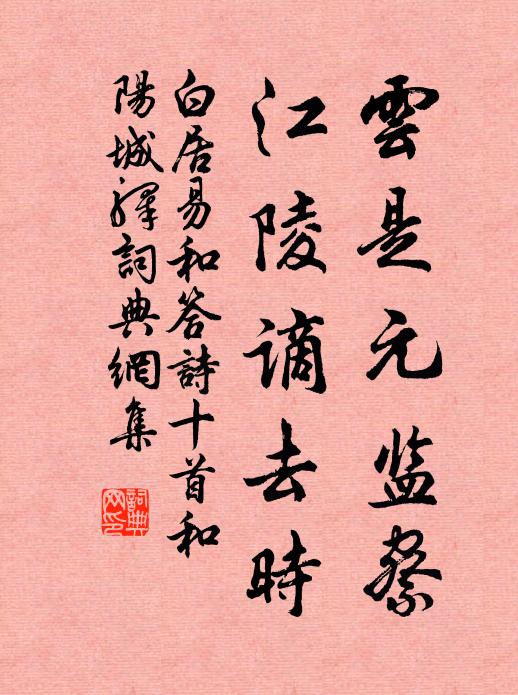 雲是元监察
江陵谪去時
白居易和答詩十首和
陽城驛詞典網集
詞典
网印